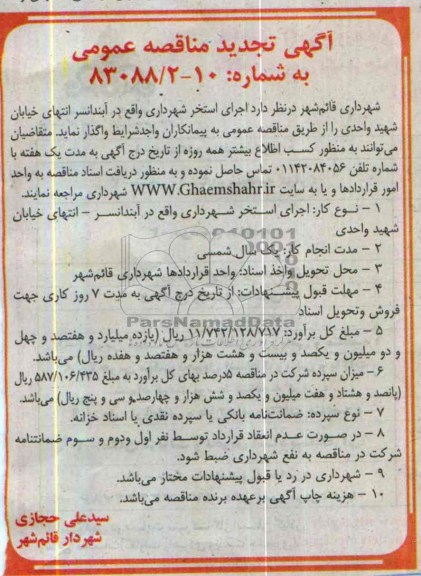 آگهی تجدید مناقصه عمومی
به شماره: ۱۰-۸۳۰۸۸/۲
شهرداری قائم‌شهر درنظر دارد اجرای استخر شهرداری واقع در آبندانسر انتهای خیابان
شهید واحدی را از طریق مناقصه عمومی به پیمانکاران واجدشرایط واگذار نماید. متقاضیان
می‌توانند به منظور کسب اطلاع بیشتر همه روزه از تاریخ درج آگهی به مدت یک هفته با
شماره تلفن ۰۱۱۴۲۰۸۴۰۵۶ تماس حاصل نموده و به منظور دریافت اسناد مناقصه به واحد
امور قراردادها و یا به سایت WWW.Ghaemshahr.ir شهرداری مراجعه نمایند.
۱ - نوع کار: اجرای استخر شهرداری واقع در آبندانسر – انتهای خیابان
شهید واحدی
۲ - مدت انجام کار: یک سال شمسی
۳ - محل تحویل واخذ اسناد: واحد قراردادها شهرداری قائم‌شهر
۴ - مهلت قبول پیشنهادات: از تاریخ درج آگهی به مدت ۷ روز کاری جهت
فروش وتحویل اسناد
ParsNamadData
۵ - مبلغ کل برآورد: ۱۱/۷۴۲/۱۲۸/۷۱۷ ریال (یازده میلیارد و هفتصد و چهل
و دو میلیون و یکصد و بیست و هشت هزار و هفتصد و هفده ریال) می‌باشد.
۶ - میزان سپرده شرکت در مناقصه ۵درصد بهای کل برآورد به مبلغ ۵۸۷/۱۰۶/۴۳۵ ریال
(پانصد و هشتاد و هفت میلیون و یکصد و شش هزار و چهارصد و سی و پنج ریال) می‌باشد.
۷ - نوع سپرده: ضمانت‌نامه بانکی یا سپرده نقدی یا اسناد خزانه.
۸ - در صورت عدم انعقاد قرارداد توسط نفر اول ودوم و سوم ضمانتنامه
شرکت در مناقصه به نفع شهرداری ضبط شود.
۹ - شهرداری در رد یا قبول پیشنهادات مختار می‌باشد.
۱۰ - هزینه چاپ آگهی برعهده برنده مناقصه می‌باشد.
سیدعلی حجازی
شهردار قائم‌شهر